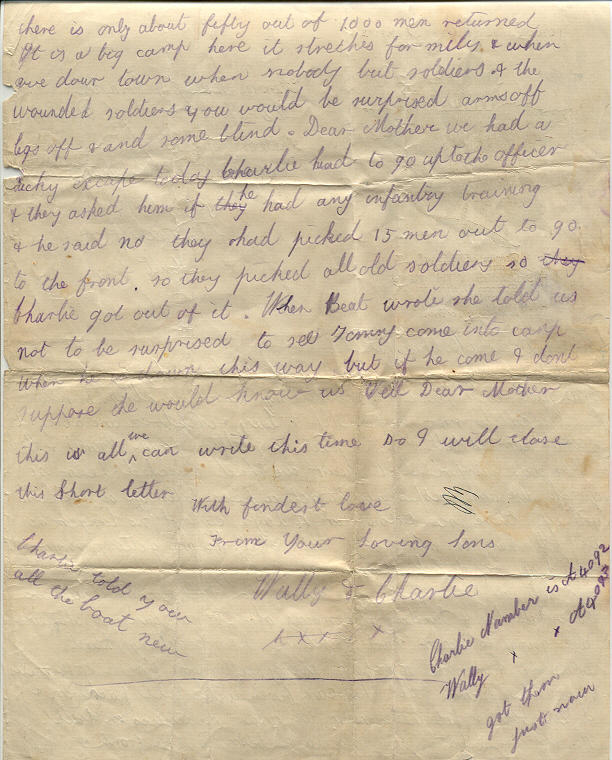 there is only about fifty out of 1000 men returned
It is a big camp here it streches for mily & when
we down town when nobody but soldiers & the
wounded soldiers you would be surprised arms off
legs off & and some blind. Dear Mother we had a
lucky escape today Charlie had to go up to the officer
& they asked him if they he had any infantry training
& he said no they had picked 15 men out to go
to the front. so they picked all old soldiers so they
Charlie got out of it. When Beat wrote she told us
not to be surprised to see Tommy come into camp
when he is down this way but if he come I dont
suppose he would know us Well Dear Mother
this is all we can write this time so I will close
this Short letter
With fondest love
From Your Loving Sons
Wally & Charlie
x x x x
Charlie told you
all the boat new
Charlie Number is A 4092
Wally x x A 4093
got them
just now